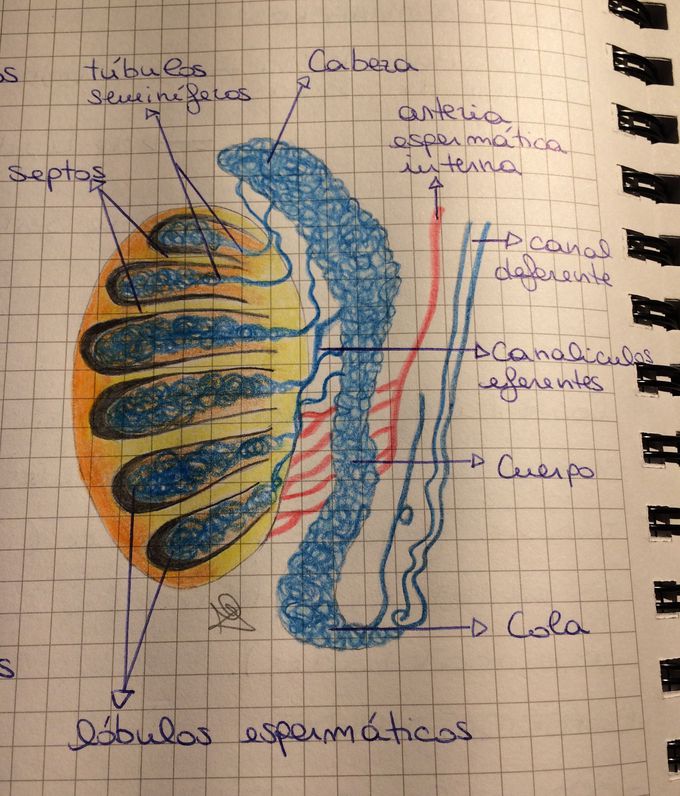 os
túbulos
seminíferos
Cabeza
arteria
espermática
interna
septos
canal
deferente
Canaliculos
eferentes
Cuerpo
Cola
s
lóbulos espermáticos